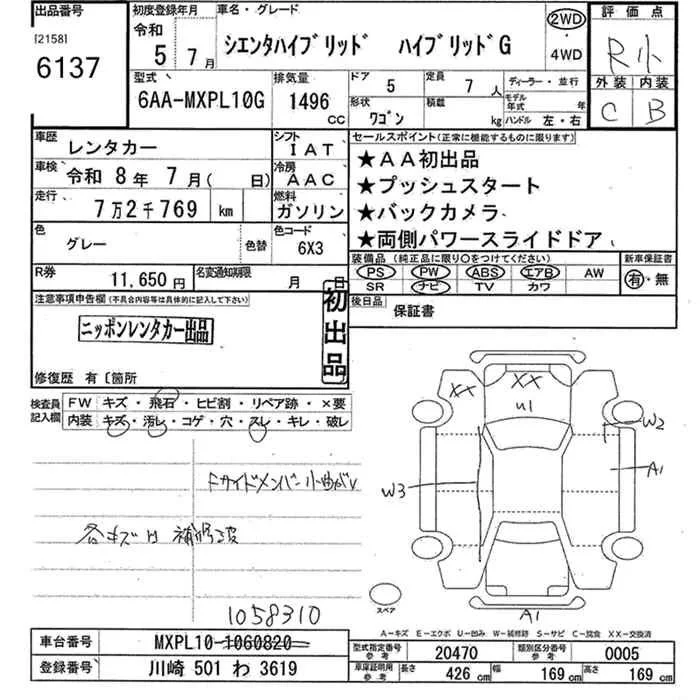 出品番号 初度登録年月 車名・グレード 評価点
[2158] 令和 2WD
6137 5年 7月 シエンタハイブリッド ハイブリッドG 4WD R小
型式 排気量 ドア 定員 ディーラー・並行 外装 内装
6AA-MXPL10G 1496 CC 5 7人 モデル年式 年 C B
形状 ワゴン 積載 kg ハンドル 左・右
車歴 レンタカー シフト IAT セールスポイント(正常に機能するものに限ります)
車検 令和 8年 7月( 日) 冷房 AAC ★AA初出品
走行 7万2千769 km 燃料 ガソリン ★プッシュスタート
★バックカメラ
色 グレー 色替 色コード 6X3 ★両側パワースライドドア
R券 11,650円 名変通知期限 月 日 装備品(純正品に限り○をつけてください) 新車保証書
PS PW ABS エアB AW 有・無
SR ナビ TV カワ
注意事項申告欄(不具合内容等は具体的に記入して下さい) 初出品 後日品 保証書
ニッポンレンタカー出品
修復歴 有〔箇所
検査員記入欄 FW キズ・飛石・ヒビ割・リペア跡・×要
内装 キズ・汚レ・コゲ・穴・スレ・キレ・破レ
XX XX
U1 W2
Fサイドメンバー小曲がり A1
W3
各キズ 補修跡
スペア
A1
1058310
A-キズ E-エクボ U-凹み W-補修跡 S-サビ C-腐食 XX-交換済
車台番号 MXPL10-1060820 型式指定番号 参考 20470 類別区分番号 参考 0005
登録番号 川崎 501 わ 3619 車庫証明用 参考 長さ 426 cm 幅 169 cm 高さ 169 cm